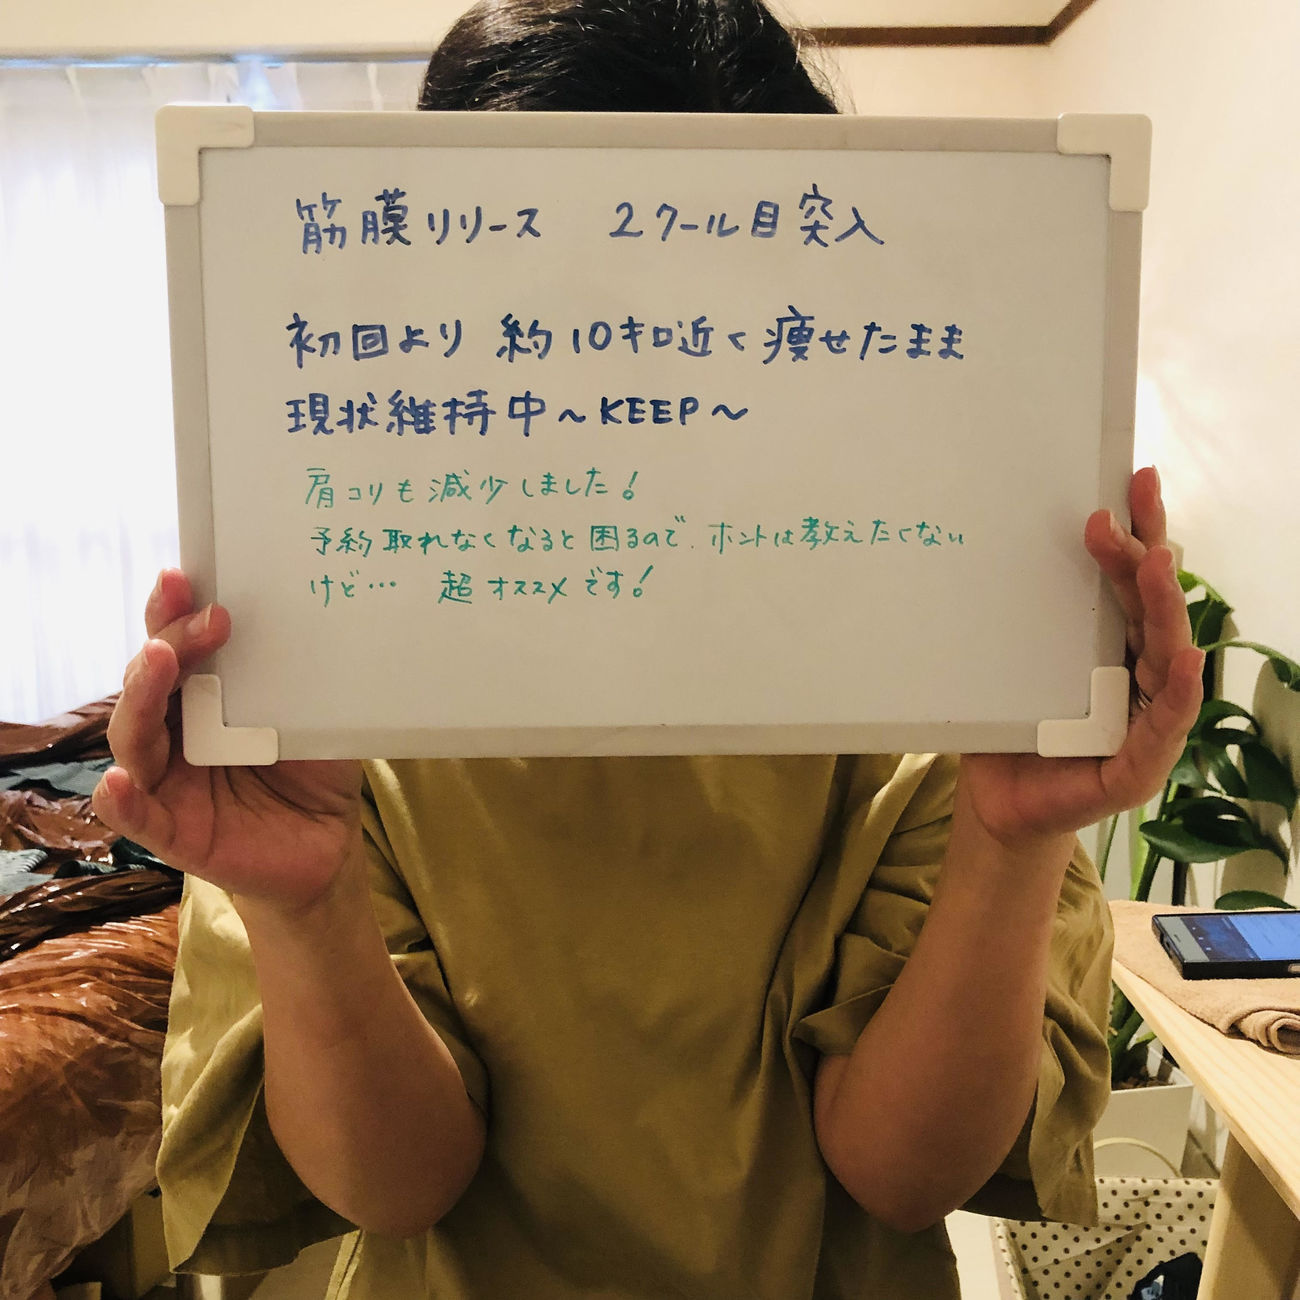 筋膜リリース 2クール目突入
初回より 約10キロ近く痩せたまま
現状維持中~KEEP~
肩コリも減少しました!
予約取れなくなると困るので、ホントは教えたくない
けど… 超オススメです!